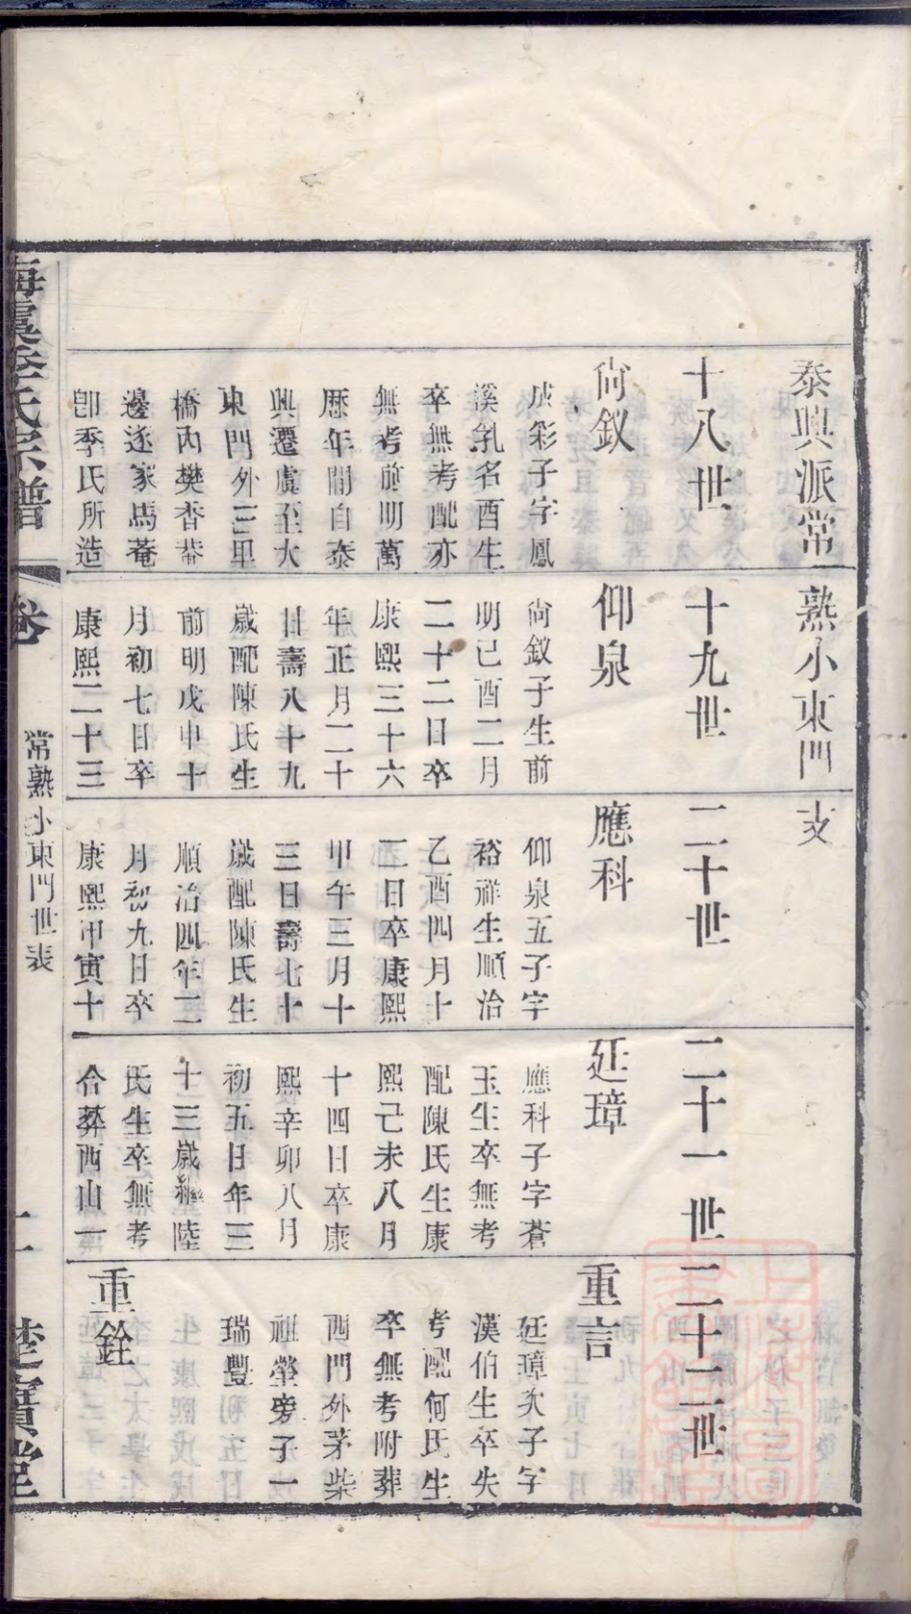 泰興派常熟小東門支
十八世
十九世
二十世
二十一世
二十二世
尙釵
成彩子字鳳
溪乳名酉生
卒無考配亦
無考前明萬
歷年間自泰
興遷虞至大
東門外三里
橋內樊香
邊遂家馬菴
卽季氏所造
仰泉
尙釵子生前
明己酉二月
二十二日卒
康熙三十六
年正月二十
日壽八十九
歲配陳氏生
前明戊申十
月初七日卒
康熙二十三
應科
仰泉五子字
裕祥生順治
乙酉四月十
二日卒康熙
甲午三月十
三日壽七十
歲配陳氏生
順治四年二
月初九日卒
康熙甲寅十
廷璋
應科子字蒼
玉生卒無考
配陳氏生康
熙己未八月
十四日卒康
熙辛卯八月
初五日年三
十三歲繼陸
氏生卒無考
合葬西山一
重言
廷璋次子字
漢伯生卒失
考配何氏生
卒無考附葬
西門外茅柴
祖塋旁子一
瑞豐
重銓
海虞季氏宗譜
卷
常熟小東門世表
楚寶堂